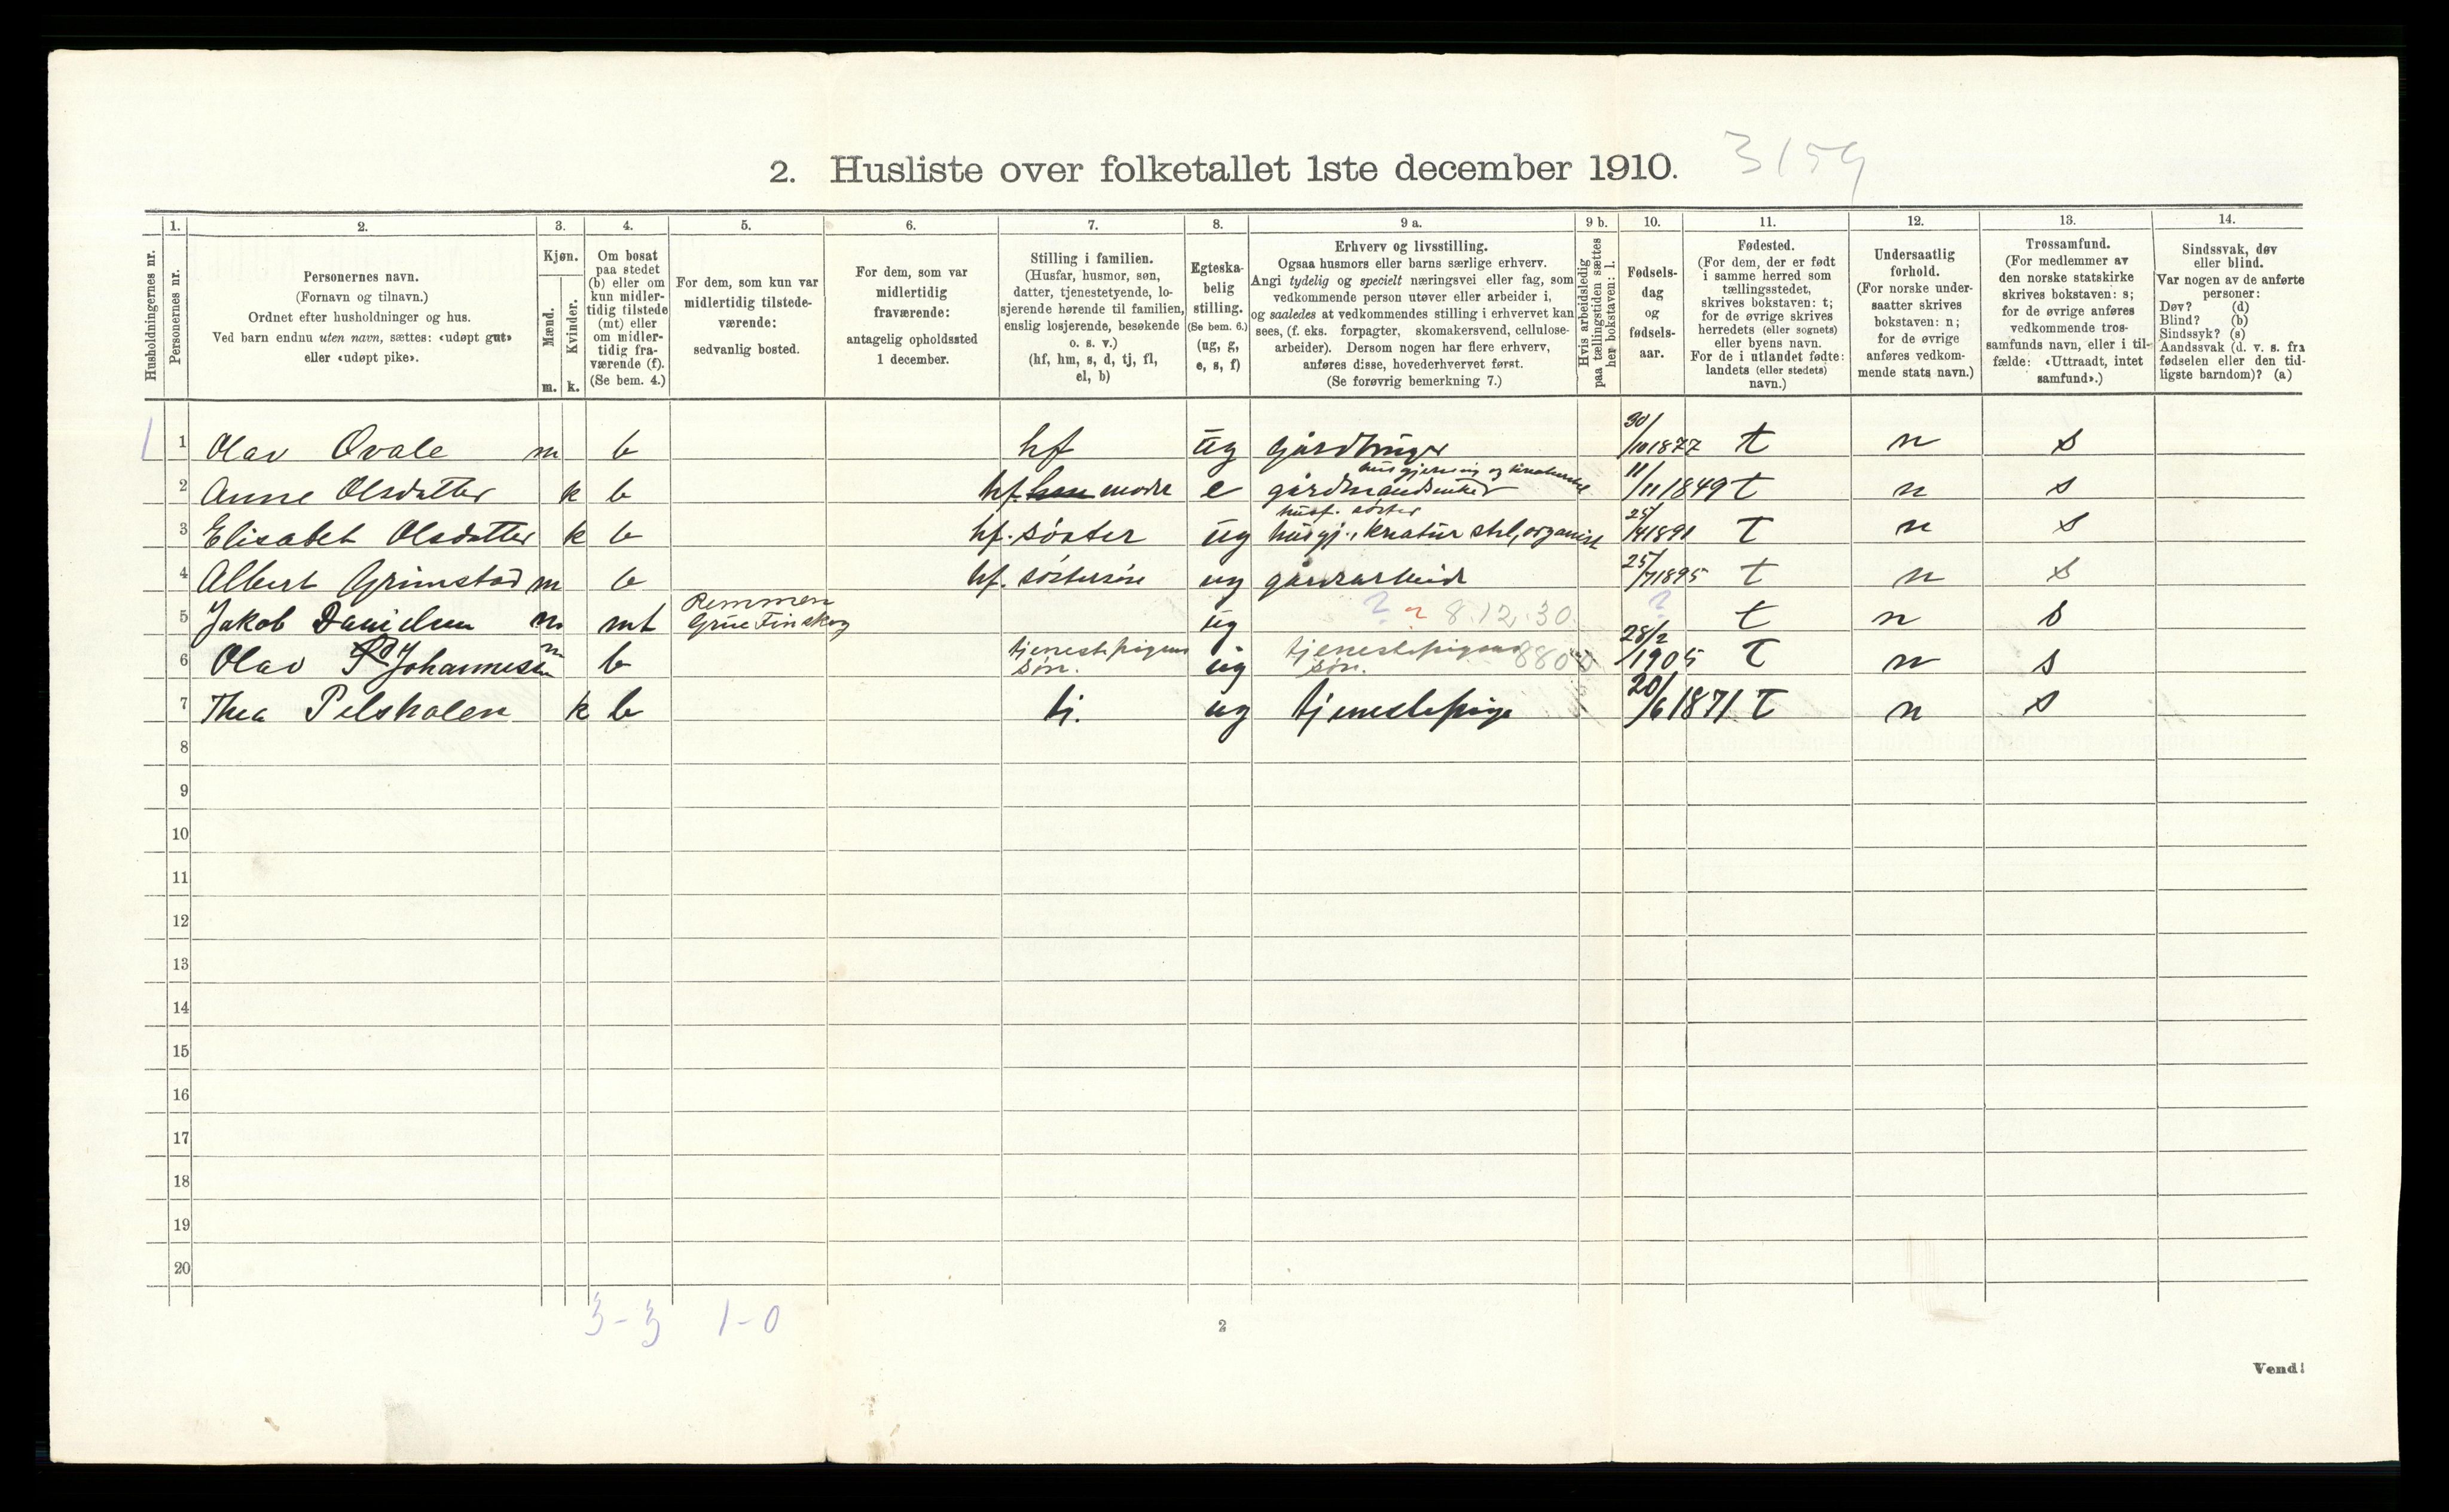 2. Husliste over folketallet 1ste december 1910. 3159
Husholdningernes nr.
1.
Personernes nr.
2.
Personernes navn.
(Fornavn og tilnavn.)
Ordnet efter husholdninger og hus.
Ved barn endnu uten navn, sættes: «udøpt gut»
eller «udøpt pike».
3.
Kjøn.
Mænd.
m.
Kvinder.
k.
4.
Om bosat
paa stedet
(b) eller om
kun midler-
tidig tilstede
(mt) eller
om midler-
tidig fra-
værende (f).
(Se bem. 4.)
5.
For dem, som kun var
midlertidig tilstede-
værende:
sedvanlig bosted.
6.
For dem, som var
midlertidig
fraværende:
antagelig opholdssted
1 december.
7.
Stilling i familien.
(Husfar, husmor, søn,
datter, tjenestetyende, lo-
sjerende hørende til familien,
enslig losjerende, besøkende
o. s. v.)
(hf, hm, s, d, tj, fl,
el, b)
8.
Egteska-
belig
stilling.
(Se bem. 6.)
(ug, g,
e, s, f)
9 a.
Erhverv og livsstilling.
Ogsaa husmors eller barns særlige erhverv.
Angi tydelig og specielt næringsvei eller fag, som
vedkommende person utøver eller arbeider i,
og saaledes at vedkommendes stilling i erhvervet kan
sees, (f. eks. forpagter, skomakersvend, cellulose-
arbeider). Dersom nogen har flere erhverv,
anføres disse, hovederhvervet først.
(Se forøvrig bemerkning 7.)
9 b.
Hvis arbeidsledig
paa tællingstiden sættes
her bokstaven: l.
10.
Fødsels-
dag
og
fødsels-
aar.
11.
Fødested.
(For dem, der er født
i samme herred som
tællingsstedet,
skrives bokstaven: t;
for de øvrige skrives
herredets (eller sognets)
eller byens navn.
For de i utlandet fødte:
landets (eller stedets)
navn.)
12.
Undersaatlig
forhold.
(For norske under-
saatter skrives
bokstaven: n;
for de øvrige
anføres vedkom-
mende stats navn.)
13.
Trossamfund.
(For medlemmer av
den norske statskirke
skrives bokstaven: s;
for de øvrige anføres
vedkommende tros-
samfunds navn, eller i til-
fælde: «Uttraadt, intet
samfund».)
14.
Sindssvak, døv
eller blind.
Var nogen av de anførte
personer:
Døv? (d)
Blind? (b)
Sindssyk? (s)
Aandssvak (d. v. s. fra
fødselen eller den tid-
ligste barndom)? (a)
1 1 Olav Ovale m b hf ug gårdbruger 30/10 1877 t n s
2 Anne Olsdatter k b hf. moder e husgjerning og gårdmandsenke 11/11 1849 t n s
husf. søster
3 Elisabet Olsdatter k b hf. søster ug husgj., kreatur stel, organist 25/4 1891 t n s
4 Albert Grimstad m b hf. søstersøn ug gårdsarbeide 25/7 1895 t n s
Remmen
5 Jakob Danielsen m mt Grue Finskog ug ? ? 8.12.30 ? t n s
6 Olav Johannesen m b tjenestepigens søn. ug tjenestepigens søn. 28/2 1905 t n s
7 Thea Pelskalen k b tj. ug tjenestepige 20/6 1871 t n s
8
9
10
11
12
13
14
15
16
17
18
19
20
3-3 1-0
2
Vend!